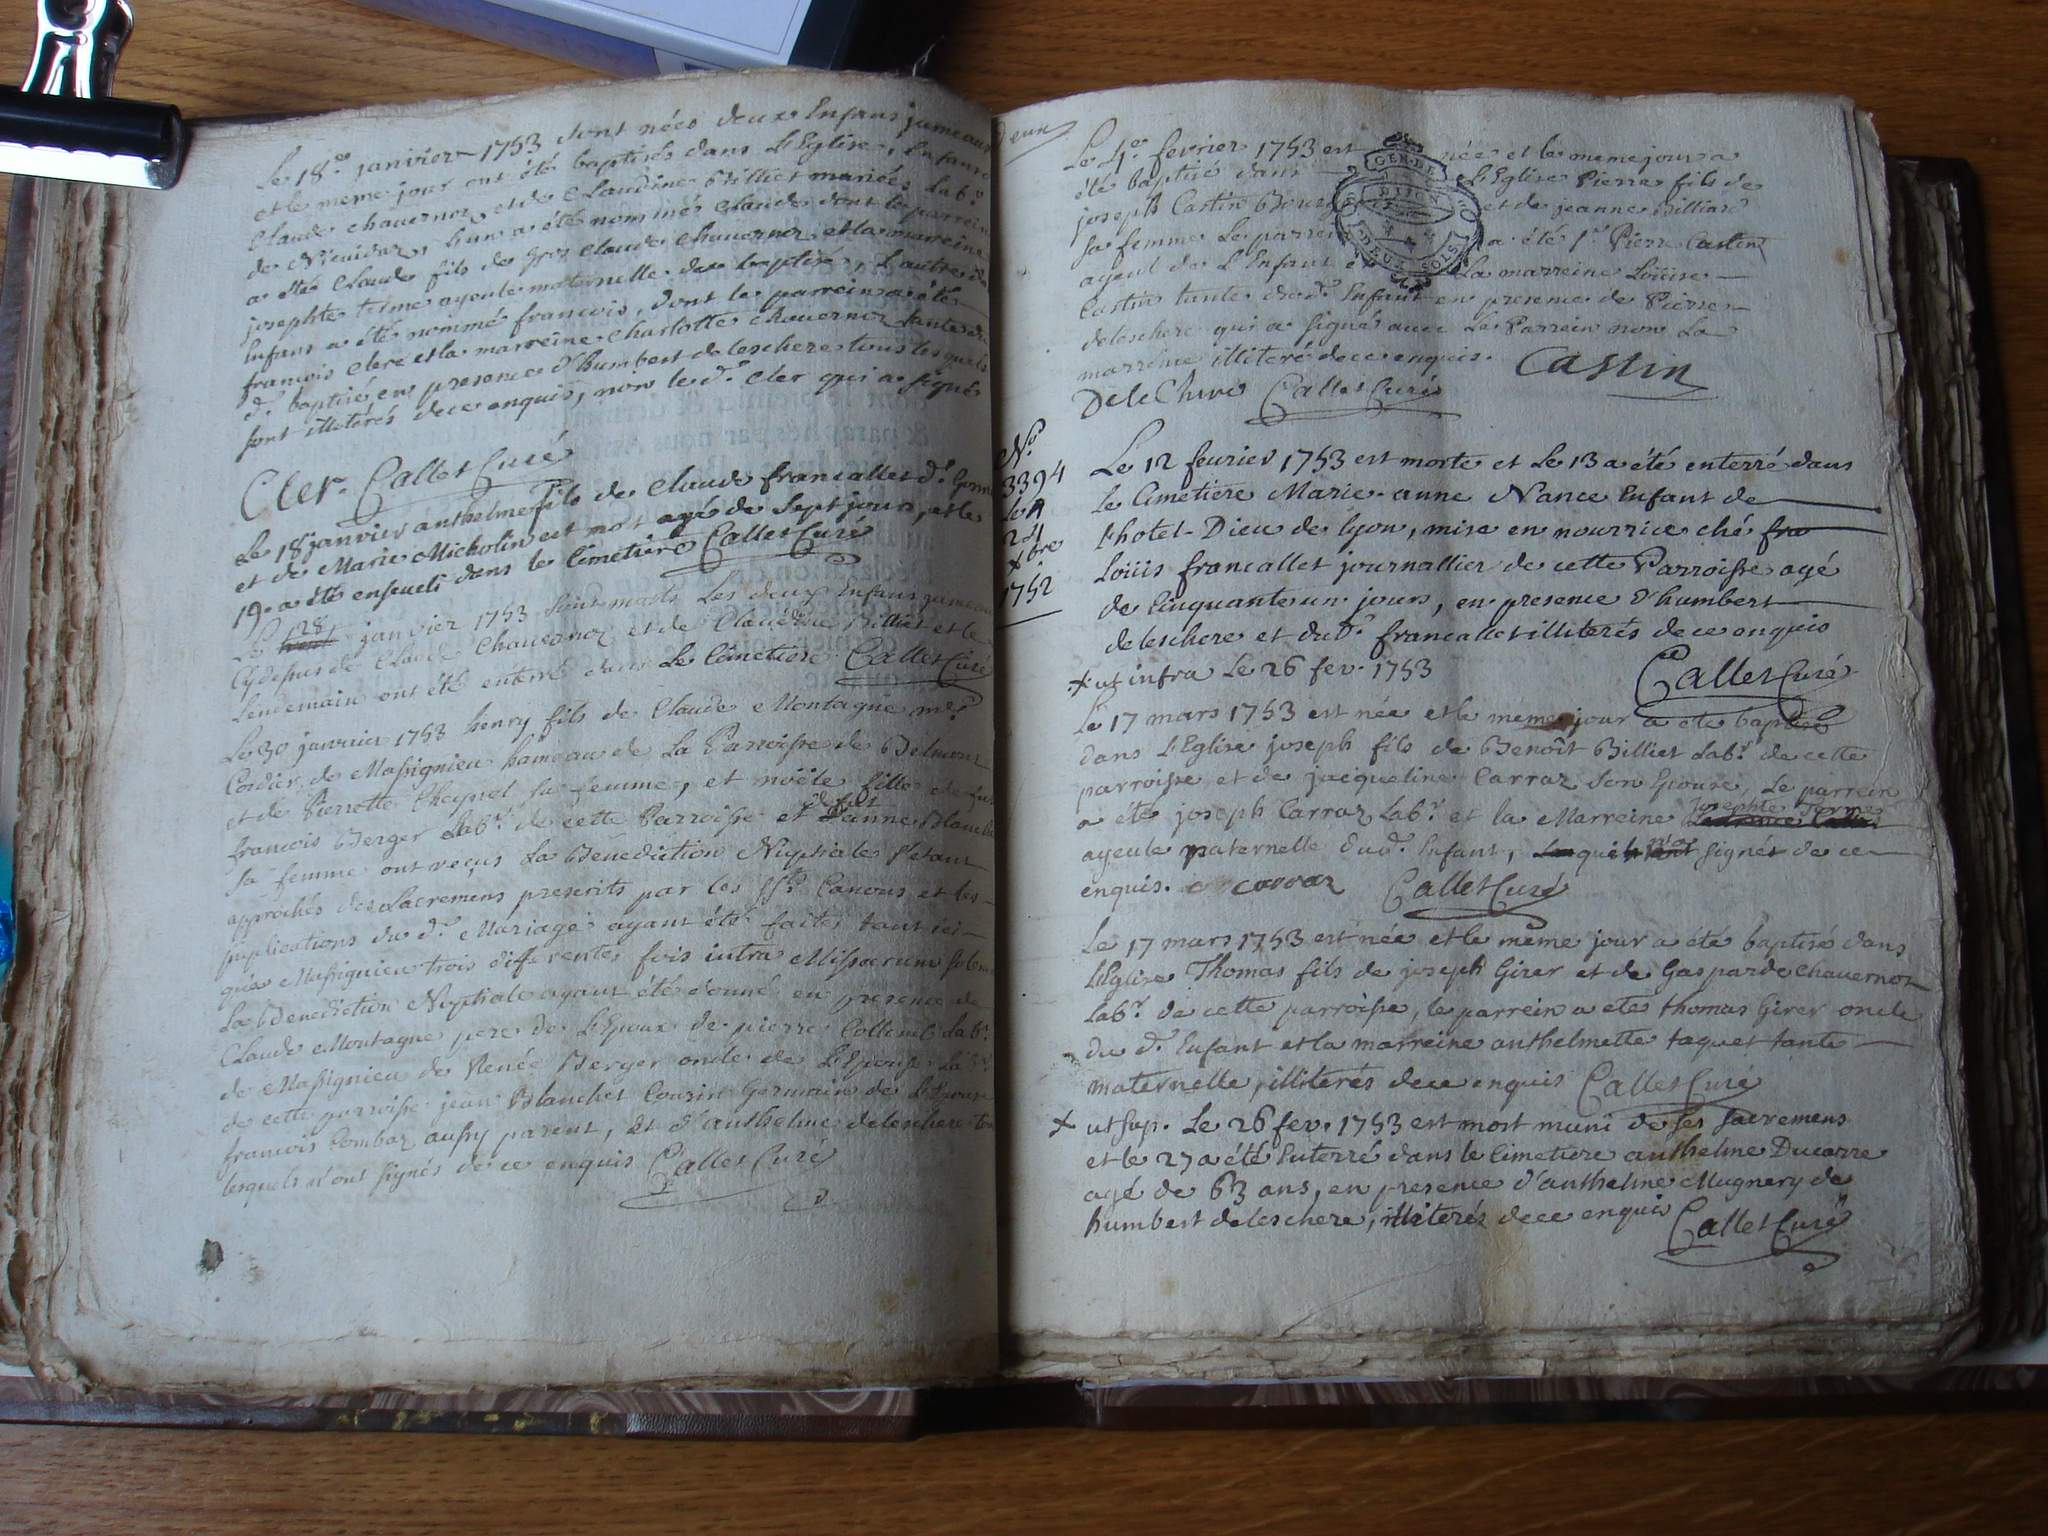 Le 18e. janvier 1753 sont nées deux Enfans jumeaux
et le meme jour ont été baptisés dans L'Eglise, Enfans
Claude chavernoz, et de Claudine Billiet mariés Labr.
a été nommé Claude dont le parrein
a été Claude fils de Claude Chavernoz et la marreine
josephte ayeule maternelle du baptisé, L'autre
Enfant a été nommé francois, dont le parrein a été
francois Clerc et la marreine Charlotte Chavernoz tante du
d. baptisé en presence d'Humbert deleschere tous lesquels
sont illiterés de ce enquis, non le d. Cler qui a signé
Cler. Callet Curé
Le 18 janvier anthelme fils de Claude francallet d.
et de Marie Micholin est mort agé de sept jours, et le
19. a été enseveli dans le Cimetiere Callet Curé
Le 28 janvier 1753 sont morts Les deux Enfans jumeaux
Cydessus de Claude Chavernoz et de Claudine Billiet et le
Lendemain ont été enterré dans Le Cimetiere Callet Curé
Le 30 janvier 1753 henry fils de Claude Montagne
Cordier de Massignieu hameau de La Parroisse de Belmont
et de Pierrette Cheynel sa femme, et fille de
francois Berger Labr. de cette Parroisse et defte Jeanne Blanchet
sa femme ont reçus La Benediction Nuptiale s'etant
approchés des Sacremens prescrits par les Sts. Canons et les
publications du d. Mariage ayant été faites tant ici
qu'a Massignieu trois differentes fois intra Missarum
La Benediction Nuptiale ayant été donné en presence de
Claude Montagne pere de L'Epoux de pierre Collomb Labr.
de Massignieu de Renée Berger oncle de L'Epouse Labr.
de cette parroisse jean Blanchet Cousin Germain de L'Epouse
francois Combaz aussy parent, et d'anthelme deleschere
lesquels n'ont signés de ce enquis Callet Curé
deux
Le 4e. fevrier 1753 est née et le meme jour a
été baptisé dans L'Eglise Pierre fils de
joseph Castin Bourgeois et de jeanne Billiard
sa femme Le parrein a été Sr. Pierre Castin
ayeul de L'Enfant et La marreine Loüise
Castin tante du d. Enfant en presence de Pierre
deleschere qui a signé avec Le Parrein non La
marreine illiteré de ce enquis. Castin
GEN. DE
DIJON
DEUX SOLS
Delechere Callet Curé
No.
3394
Le
24
xbre
1752
Le 12 fevrier 1753 est morte et Le 13 a été enterré dans
le Cimetiere Marie-anne Nance Enfant de
l'hotel-Dieu de lyon, mise en nourrice ché fra
Loüis francallet journallier de cette Parroisse agé
de Cinquante un jours, en presence d'humbert
deleschere et du d. francallet illiterés de ce enquis
x ut infra Le 26 fev. 1753 Callet Curé
Le 17 mars 1753 est née et le meme jour a été baptisé
dans L'Eglise joseph fils de Benoît Billiet Labr. de cette
parroisse et de jacqueline Carraz son Epouse, Le parrein
a été joseph Carraz Labr. et la Marreine josephte
ayeule paternelle du d. Enfant, qui n'ont signés de ce
enquis. carraz Callet Curé
Le 17 mars 1753 est née et le même jour a été baptisé dans
L'Eglise Thomas fils de joseph Girer et de Gasparde Chavernoz
Labr. de cette parroisse, le parrein a eté thomas Girer oncle
du d. Enfant et la marreine anthelmette taquet tante
maternelle, illiterés de ce enquis Callet Curé
x ut sup. Le 26 fev. 1753 est mort muni de ses sacremens
et le 27 a été Enterré dans le Cimetiere anthelme Ducarre
agé de 63 ans, en presence d'anthelme Mugnery de
humbert deleschere, illiterés de ce enquis Callet Curé